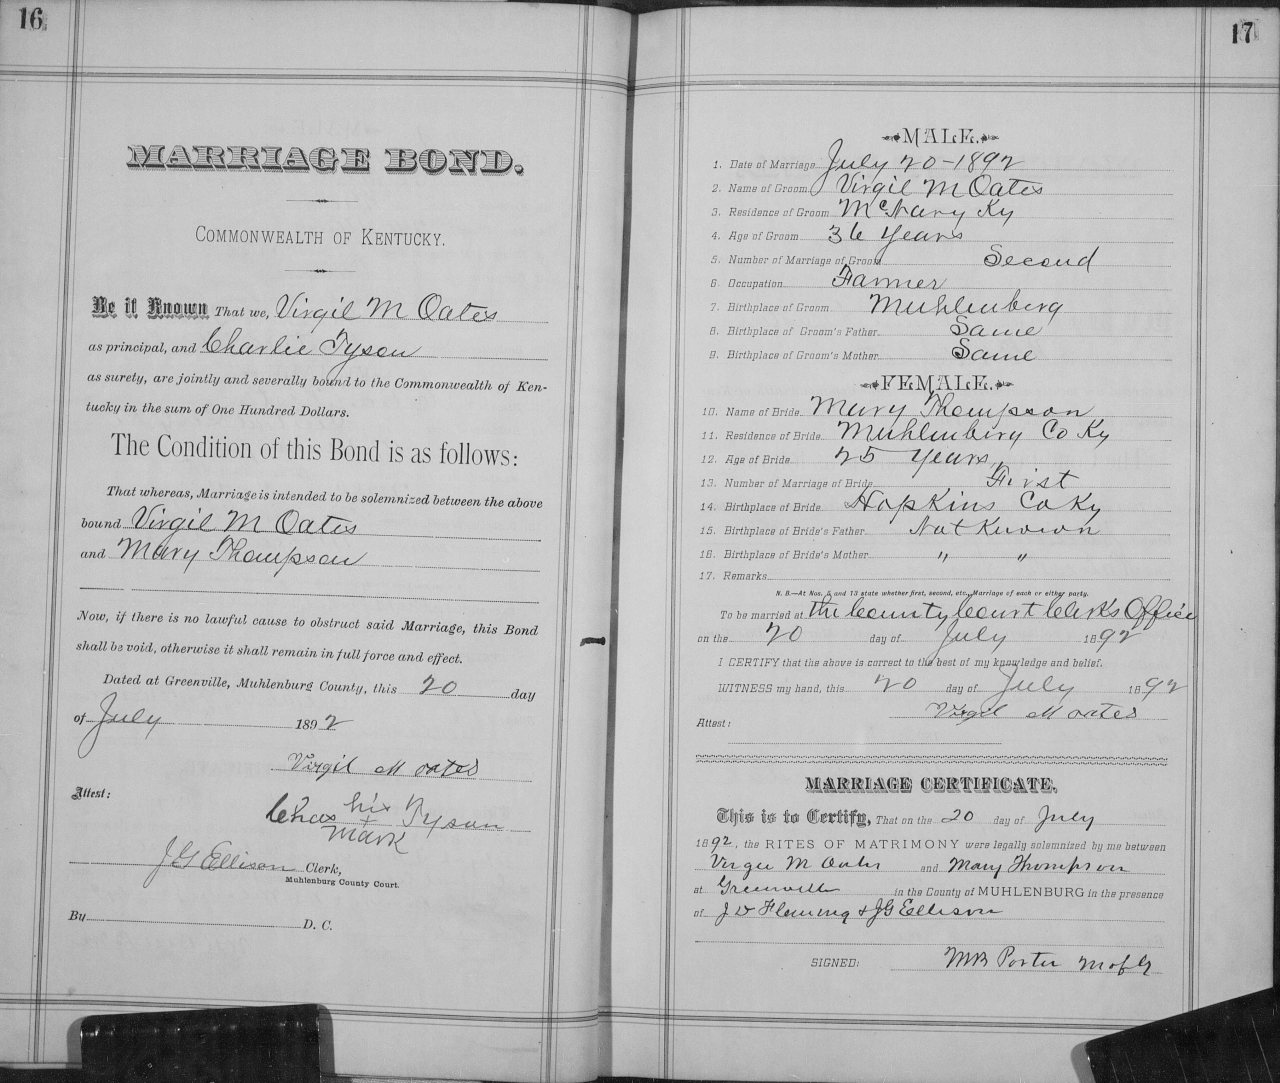 16
MARRIAGE BOND.
COMMONWEALTH OF KENTUCKY.
Be it Known That we, Virgil M Oates
as principal, and Charlie Tyson
as surety, are jointly and severally bound to the Commonwealth of Ken-
tucky in the sum of One Hundred Dollars.
The Condition of this Bond is as follows:
That whereas, Marriage is intended to be solemnized between the above
bound Virgil M Oates
and Mary Thompson
Now, if there is no lawful cause to obstruct said Marriage, this Bond
shall be void, otherwise it shall remain in full force and effect.
Dated at Greenville, Muhlenburg County, this 20 day
of July 1892
Virgil M oates
Attest:
Chas his Tyson
+
mark
J G Ellison Clerk,
Muhlenburg County Court.
By D. C.
17
MALE.
1. Date of Marriage July 20-1892
2. Name of Groom Virgil M Oates
3. Residence of Groom McNary Ky
4. Age of Groom 36 Years
5. Number of Marriage of Groom Second
6. Occupation Farmer
7. Birthplace of Groom Muhlenberg
8. Birthplace of Groom's Father Same
9. Birthplace of Groom's Mother Same
FEMALE.
10. Name of Bride Mary Thompson
11. Residence of Bride Muhlenberg Co Ky
12. Age of Bride 25 Years
13. Number of Marriage of Bride First
14. Birthplace of Bride Hopkins Co Ky
15. Birthplace of Bride's Father Not Known
16. Birthplace of Bride's Mother " "
17. Remarks
N. B.—At Nos. 5 and 13 state whether first, second, etc., Marriage of each or either party.
To be married at the County Court Clerks Office
on the 20 day of July 1892
I CERTIFY that the above is correct to the best of my knowledge and belief.
WITNESS my hand, this 20 day of July 1892
Virgil M oates
Attest:
MARRIAGE CERTIFICATE.
This is to Certify, That on the 20 day of July
1892, the RITES OF MATRIMONY were legally solemnized by me between
Virgil M Oates and Mary Thompson
at Greenville in the County of MUHLENBURG in the presence
of J D Fleming & J G Ellison
SIGNED: MB Porter M of G